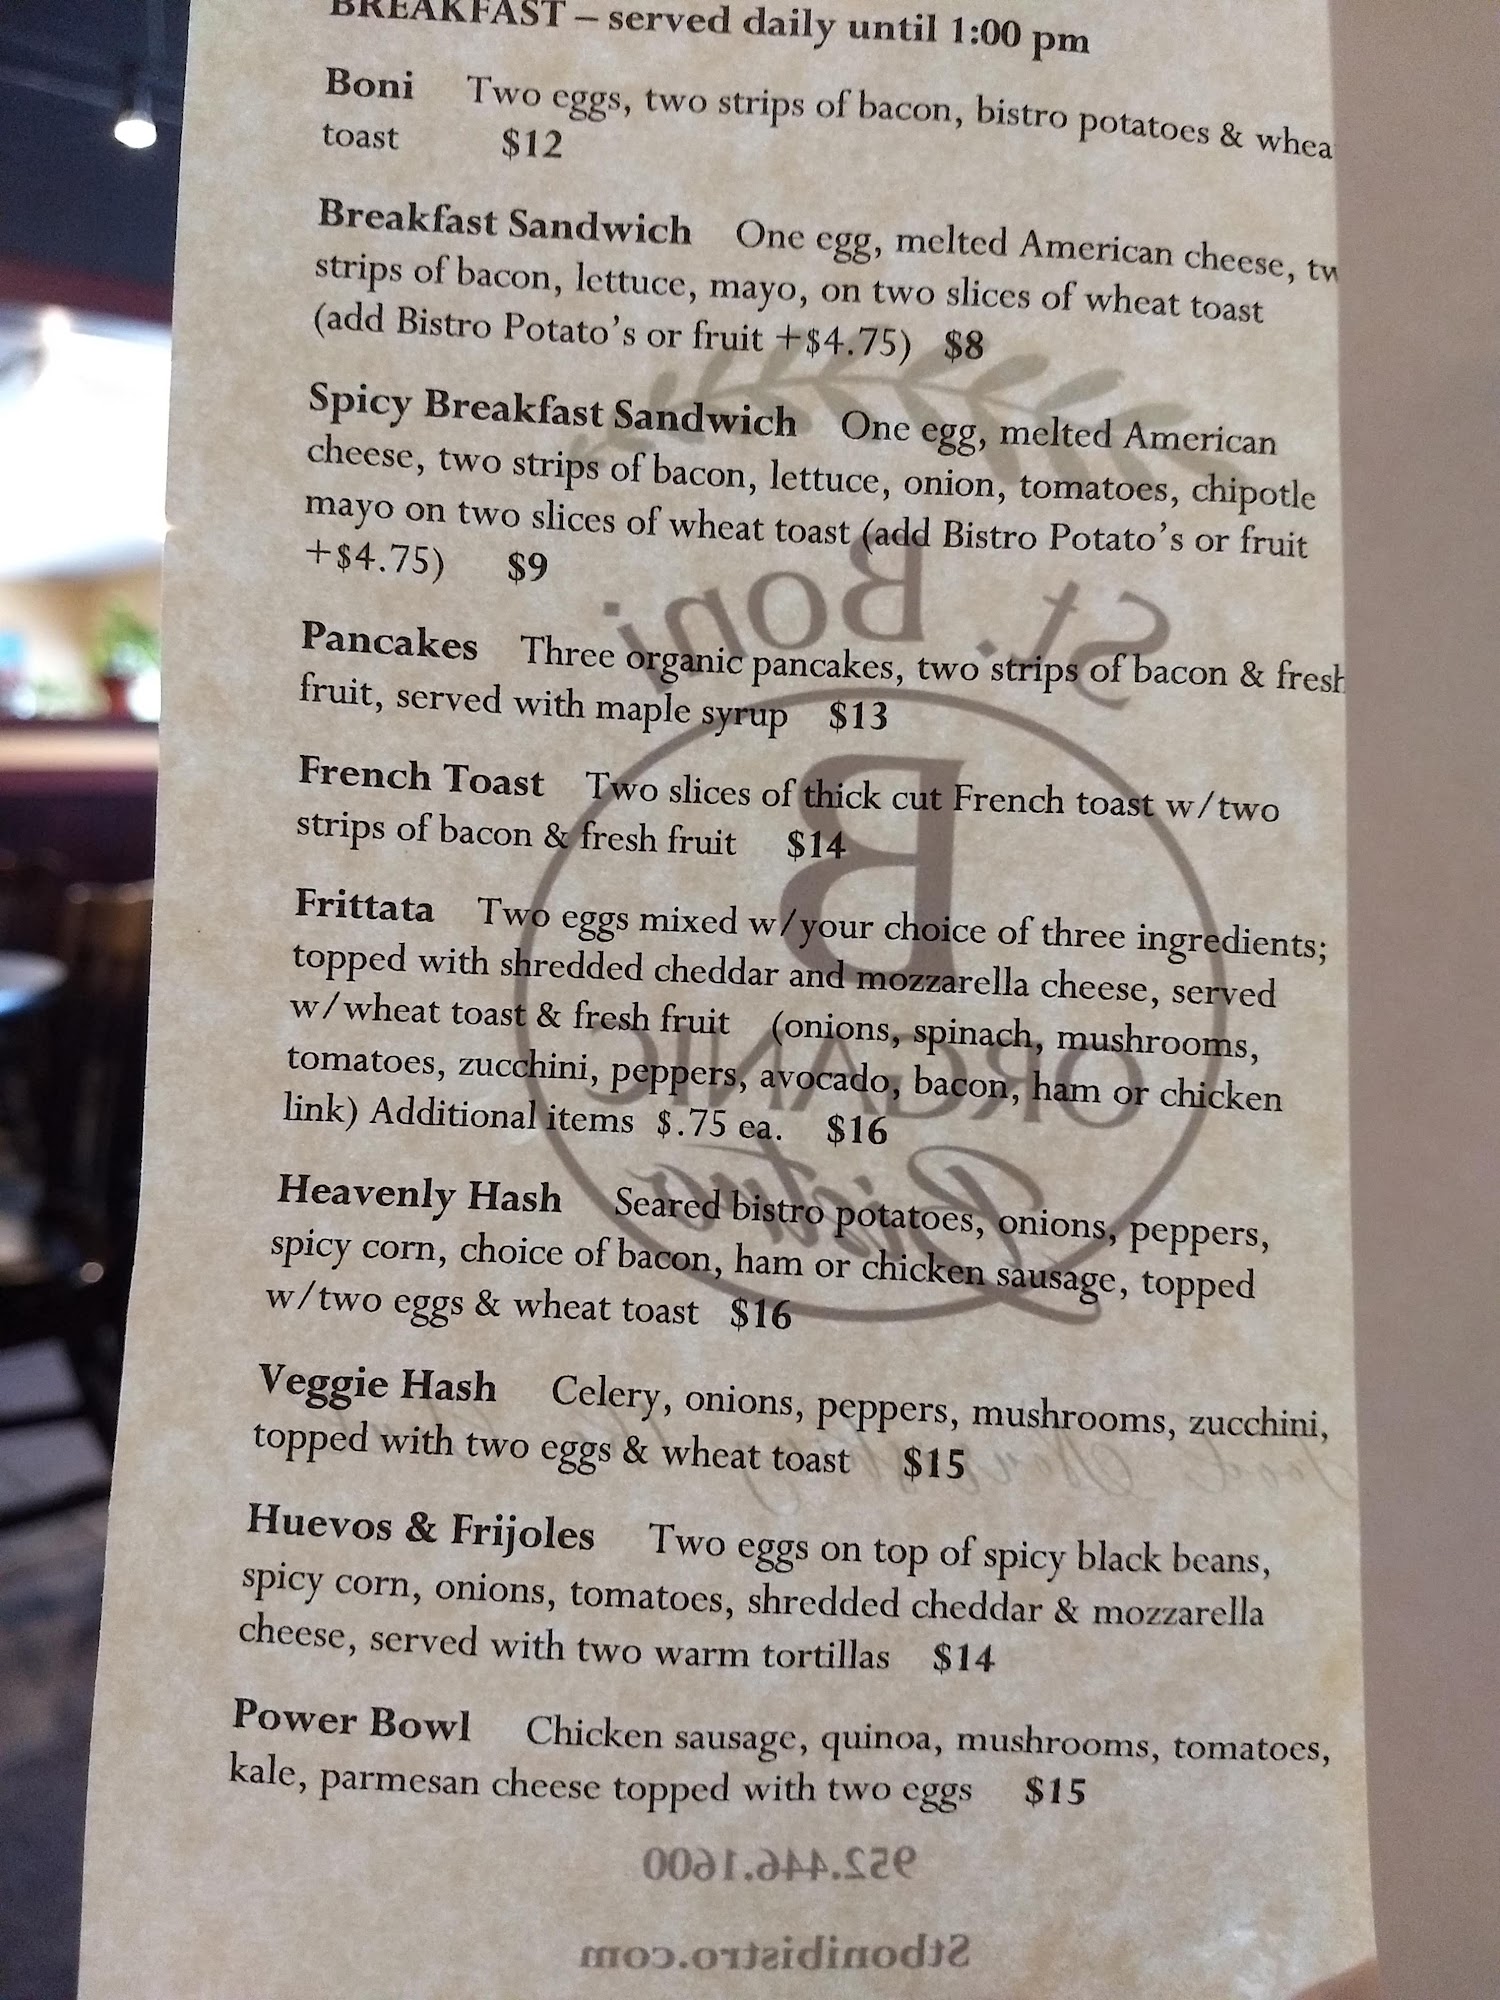 BREAKFAST – served daily until 1:00 pm
Boni Two eggs, two strips of bacon, bistro potatoes & whea
toast $12
Breakfast Sandwich One egg, melted American cheese, tw
strips of bacon, lettuce, mayo, on two slices of wheat toast
(add Bistro Potato's or fruit +$4.75) $8
Spicy Breakfast Sandwich One egg, melted American
cheese, two strips of bacon, lettuce, onion, tomatoes, chipotle
mayo on two slices of wheat toast (add Bistro Potato's or fruit
+$4.75) $9
Pancakes Three organic pancakes, two strips of bacon & fresh
fruit, served with maple syrup $13
French Toast Two slices of thick cut French toast w/two
strips of bacon & fresh fruit $14
Frittata Two eggs mixed w/your choice of three ingredients;
topped with shredded cheddar and mozzarella cheese, served
w/wheat toast & fresh fruit (onions, spinach, mushrooms,
tomatoes, zucchini, peppers, avocado, bacon, ham or chicken
link) Additional items $.75 ea. $16
Heavenly Hash Seared bistro potatoes, onions, peppers,
spicy corn, choice of bacon, ham or chicken sausage, topped
w/two eggs & wheat toast $16
Veggie Hash Celery, onions, peppers, mushrooms, zucchini,
topped with two eggs & wheat toast $15
Huevos & Frijoles Two eggs on top of spicy black beans,
spicy corn, onions, tomatoes, shredded cheddar & mozzarella
cheese, served with two warm tortillas $14
Power Bowl Chicken sausage, quinoa, mushrooms, tomatoes,
kale, parmesan cheese topped with two eggs $15
St. Boni
B
ORGANIC
Bistro
952.446.1600
Stbonibistro.com